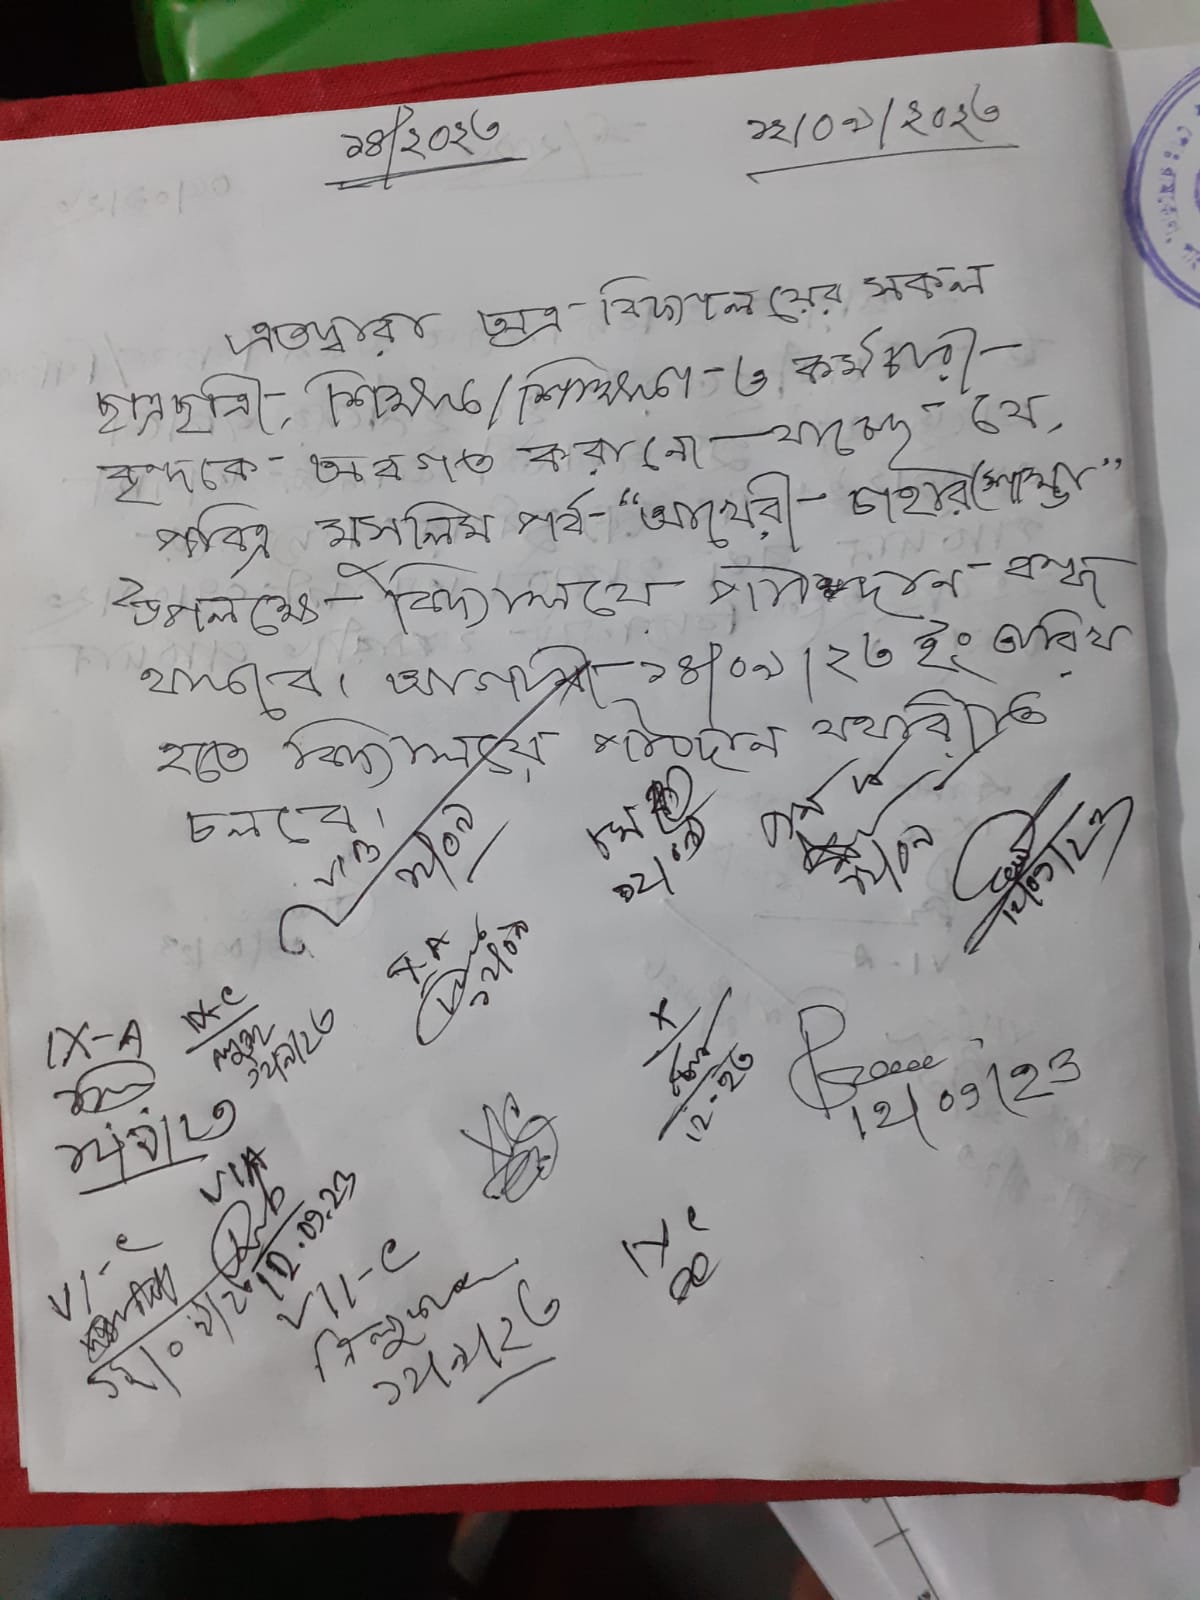 ১৪/২০২৩
১২/০৯/২০২৩
এতদ্বারা অত্র বিদ্যালয়ের সকল
ছাত্রছাত্রী, শিক্ষক/শিক্ষিকা ও কর্মচারী-
বৃন্দকে অবগত করানো যাচ্ছে যে,
পবিত্র মুসলিম পর্ব "আখেরী চাহার সোম্বা"
উপলক্ষে বিদ্যালয়ে পাঠদান বন্ধ
থাকবে। আগামী ১৪/০৯/২৩ ইং তারিখ
হতে বিদ্যালয়ে পাঠদান যথারীতি
চলবে।
১২/০৯
১২/০৯
১২/০৯
12/09/23
X-A
১২/০৯
IX-A
IX-C
১২/৯/২৩
X
12-২৩
12/09/23
১২/৯/২৩
VIA
12.09.23
VI-C
১২/০৯/২৩
VII-C
১২/৯/২৩
IX C